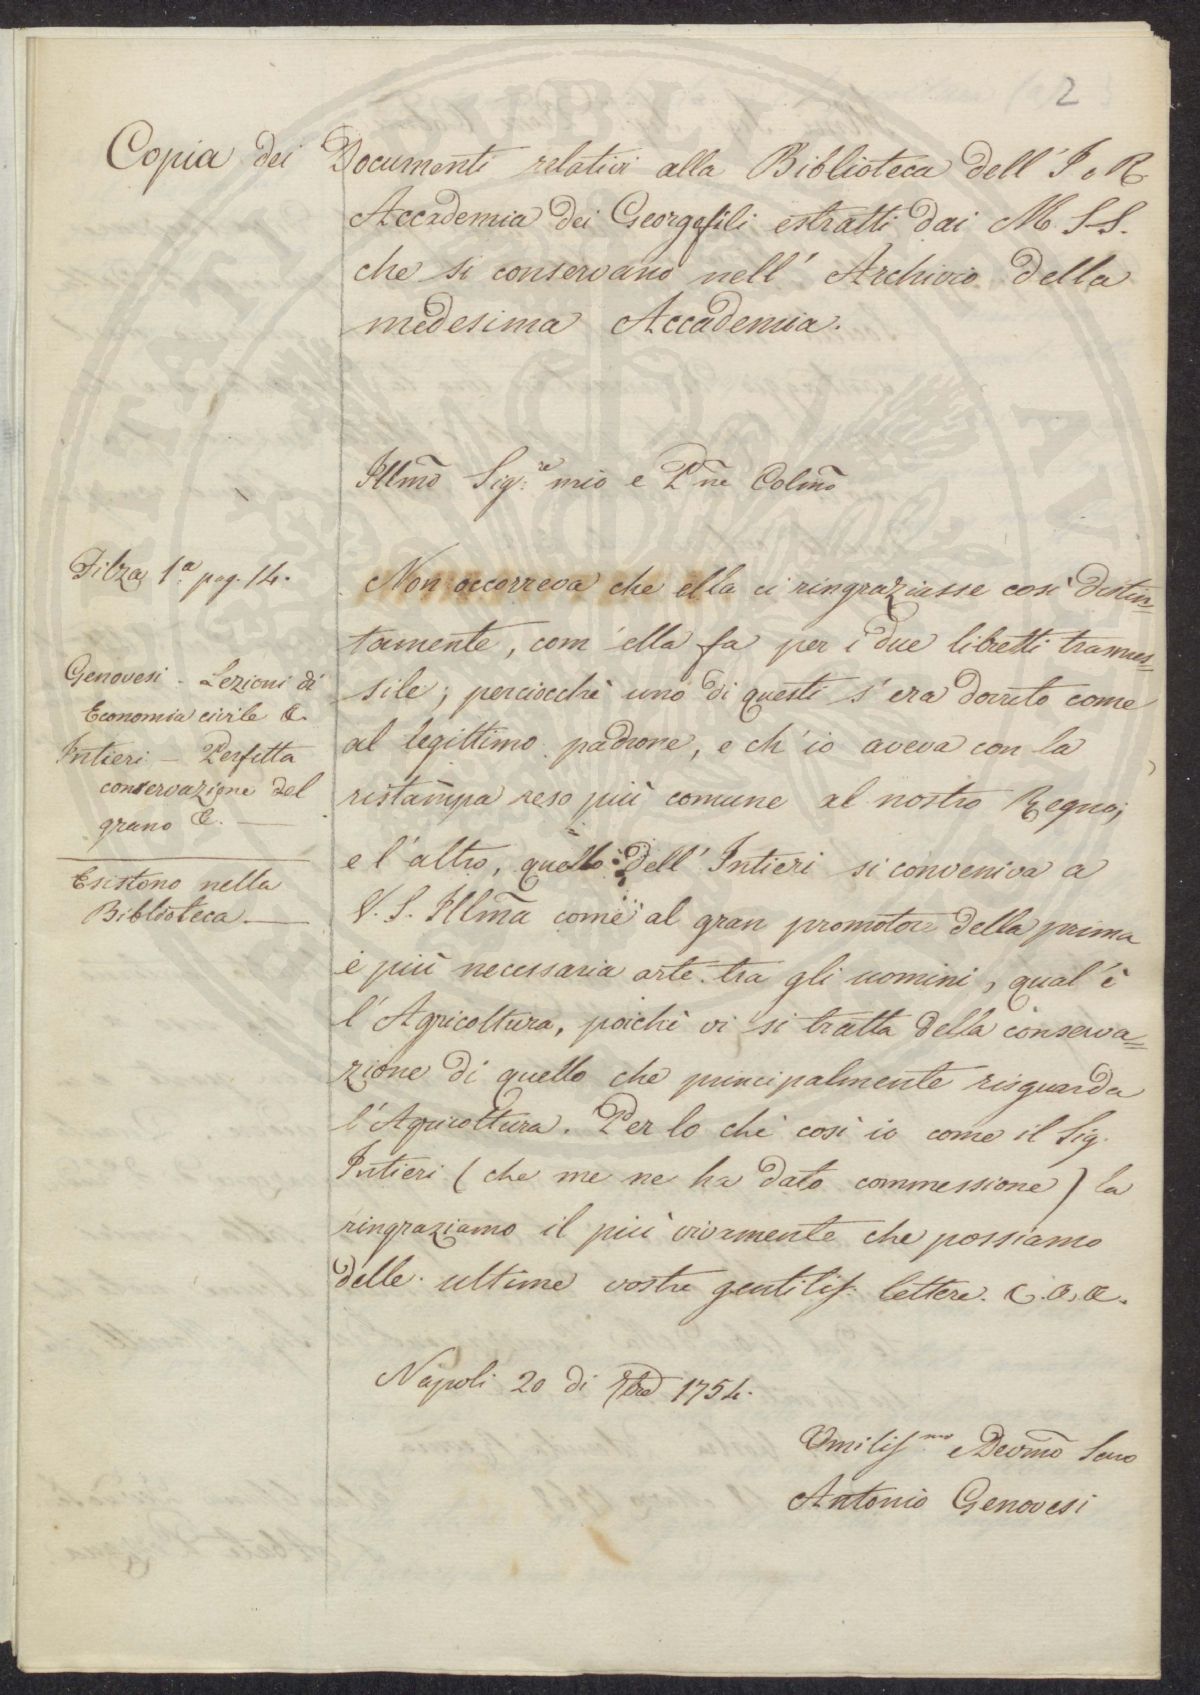 2
Copia dei Documenti relativi alla Biblioteca dell' I. e R.
Accademia dei Georgofili estratti dai M. S-S.
che si conservano nell' Archivio della
medesima Accademia.
Illmõ Sig:re mio e Pñe Colmõ
Filza 1.a pag. 14.
Genovesi - Lezioni di
Economia civile &.
Intieri - Perfetta
conservazione del
grano &. —
Esistono nella
Biblioteca. —
Non occorreva che ella ci ringraziasse così distin=
tamente, com' ella fa per i due libretti trasmes=
sile; perciocchè uno di questi s' era dovuto come
al legittimo padrone, e ch' io aveva con la
ristampa reso più comune al nostro Regno;
e l' altro, quello dell' Intieri si conveniva a
V. S. Illmã come al gran promotore della prima
e più necessaria arte tra gli uomini, qual' è
l' Agricoltura, poichè vi si tratta della conserva=
zione di quello che principalmente risguarda
l' Agricoltura. Per lo chè così io come il Sig.
Intieri (che me ne ha dato commessione) la
ringraziamo il più vivamente che possiamo
delle ultime vostre gentilis: lettere. &. &. &.
Napoli 20 di 1754.
Umilis.mo e Devmõ Servo
Antonio Genovesi